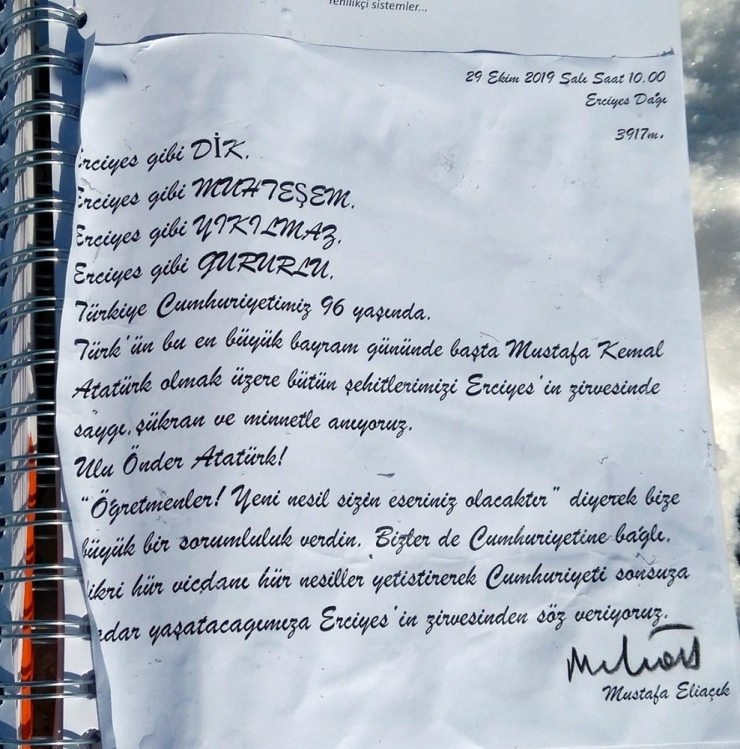 Yenilikçi sistemler...
29 Ekim 2019 Salı Saat 10.00
Erciyes Dağı
3917m.
Erciyes gibi DİK.
Erciyes gibi MUHTEŞEM.
Erciyes gibi YIKILMAZ.
Erciyes gibi GURURLU.
Türkiye Cumhuriyetimiz 96 yaşında.
Türk'ün bu en büyük bayram gününde başta Mustafa Kemal
Atatürk olmak üzere bütün şehitlerimizi Erciyes'in zirvesinde
saygı, şükran ve minnetle anıyoruz.
Ulu Önder Atatürk!
"Öğretmenler! Yeni nesil sizin eseriniz olacaktır" diyerek bize
büyük bir sorumluluk verdin. Bizler de Cumhuriyetine bağlı,
fikri hür vicdanı hür nesiller yetistirerek Cumhuriyeti sonsuza
kadar yaşatacagımıza Erciyes'in zirvesinden söz veriyoruz.
Mustafa Eliaçık